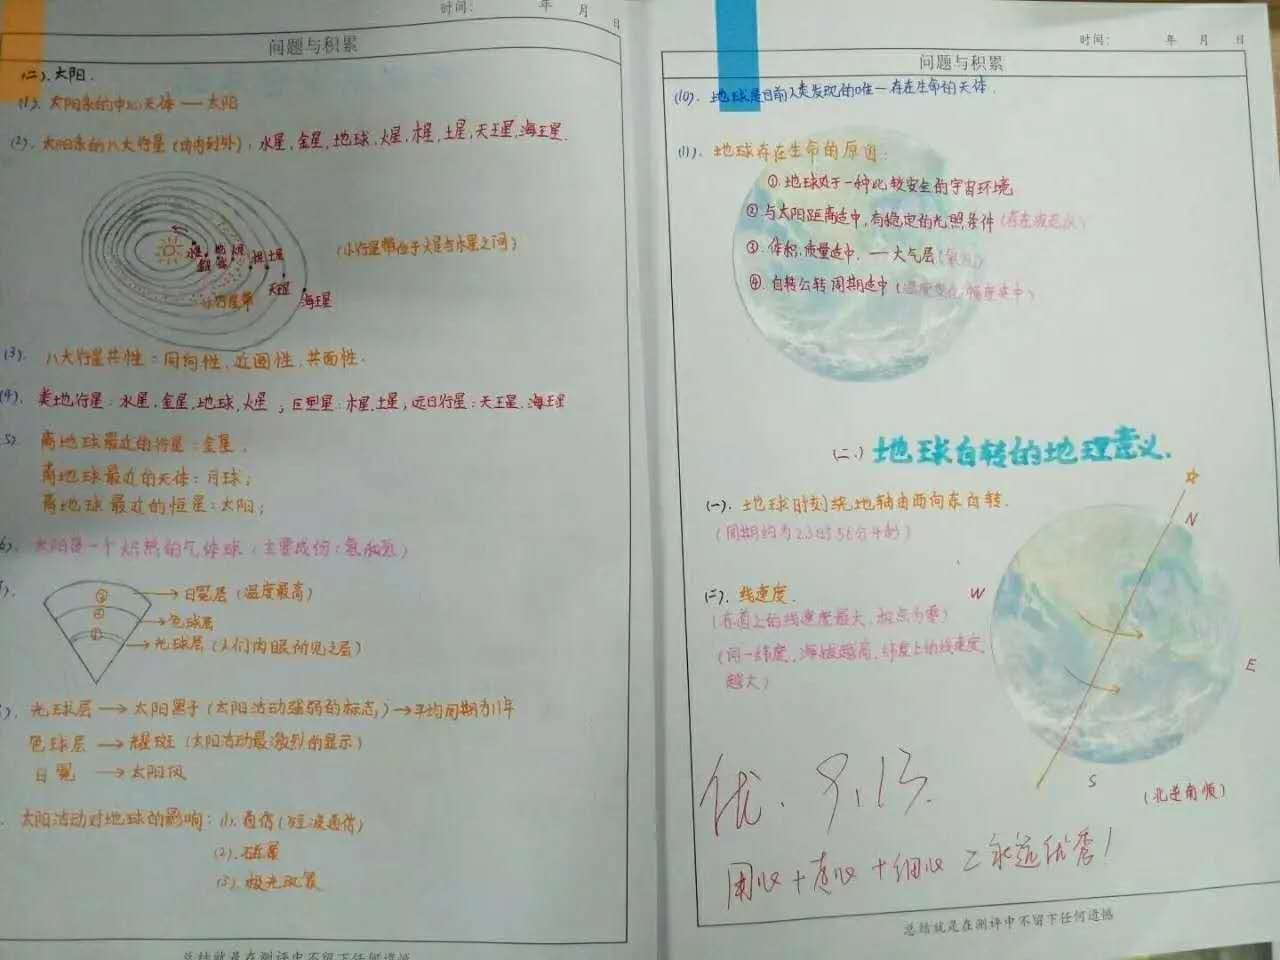 时间： 年 月 日
问题与积累
(二).太阳.
(1). 太阳系的中心天体——太阳
(2). 太阳系的八大行星(由内到外)：水星,金星,地球,火星,木星,土星,天王星,海王星.
(小行星带位于火星与木星之间)
水星 地 火星 木星 土星
金星 球
小行星带 天王星 海王星
(3). 八大行星共性：同向性,近圆性,共面性.
(4). 类地行星：水星,金星,地球,火星；巨型星：木星,土星,远日行星：天王星,海王星
5). 离地球最近的行星：金星.
离地球最近的天体：月球；
离地球最近的恒星：太阳；
6). 太阳是一个炽热的气体球(主要成份：氢和氦)
③ →日冕层(温度最高)
② →色球层
① →光球层(人们肉眼所见之层)
). 光球层→太阳黑子(太阳活动强弱的标志)→平均周期为11年
色球层→耀斑(太阳活动最激烈的显示)
日冕→太阳风
太阳活动对地球的影响：(1).通信(短波通信)
(2).磁暴
(3).极光现象
总结就是在测评中不留下任何遗憾
时间： 年 月 日
问题与积累
(10). 地球是目前人类发现的唯一存在生命的天体.
(11). 地球存在生命的原因：
①.地球处于一种比较安全的宇宙环境
②与太阳距离适中,有稳定的光照条件
③.体积,质量适中.——大气层
④.自转公转周期适中(温度变化幅度适中)
(二.)地球自转的地理意义.
(一).地球时刻绕地轴由西向东自转.
(周期约为23时56分4秒)
N
(二).线速度.
W
(赤道上的线速度最大,极点为零)
(同一纬度,海拔越高,纬度上的线速度
越大)
E
S
(北逆南顺)
优. 9.13.
用心+恒心+细心=永远优秀！
总结就是在测评中不留下任何遗憾